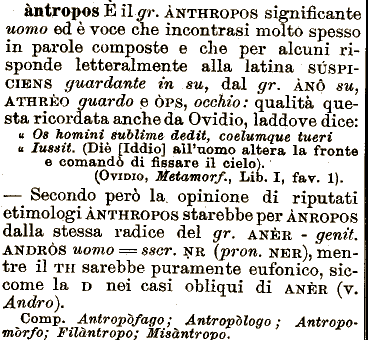 àntropos È il gr. ÀNTHROPOS significante
uomo ed è voce che incontrasi molto spesso
in parole composte e che per alcuni ri-
sponde letteralmente alla latina SÚSPI-
CIENS guardante in su, dal gr. ÀNÔ su,
ATHRÈO guardo e ÒPS, occhio: qualità que-
sta ricordata anche da Ovidio, laddove dice:
« Os homini sublime dedit, coelumque tueri
« Iussit. (Diè [Iddio] all'uomo altera la fronte
e comandò di fissare il cielo).
(OVIDIO, Metamorf., Lib. I, fav. 1).
— Secondo però la opinione di riputati
etimologi ÀNTHROPOS starebbe per ÀNROPOS
dalla stessa radice del gr. ANÈR - genit.
ANDRÒS uomo = sscr. NR (pron. NER), men-
tre il TH sarebbe puramente eufonico, sic-
come la D nei casi obliqui di ANÈR (v.
Andro).
Comp. Antropòfago; Antropòlogo; Antropo-
mòrfo; Filàntropo; Misàntropo.